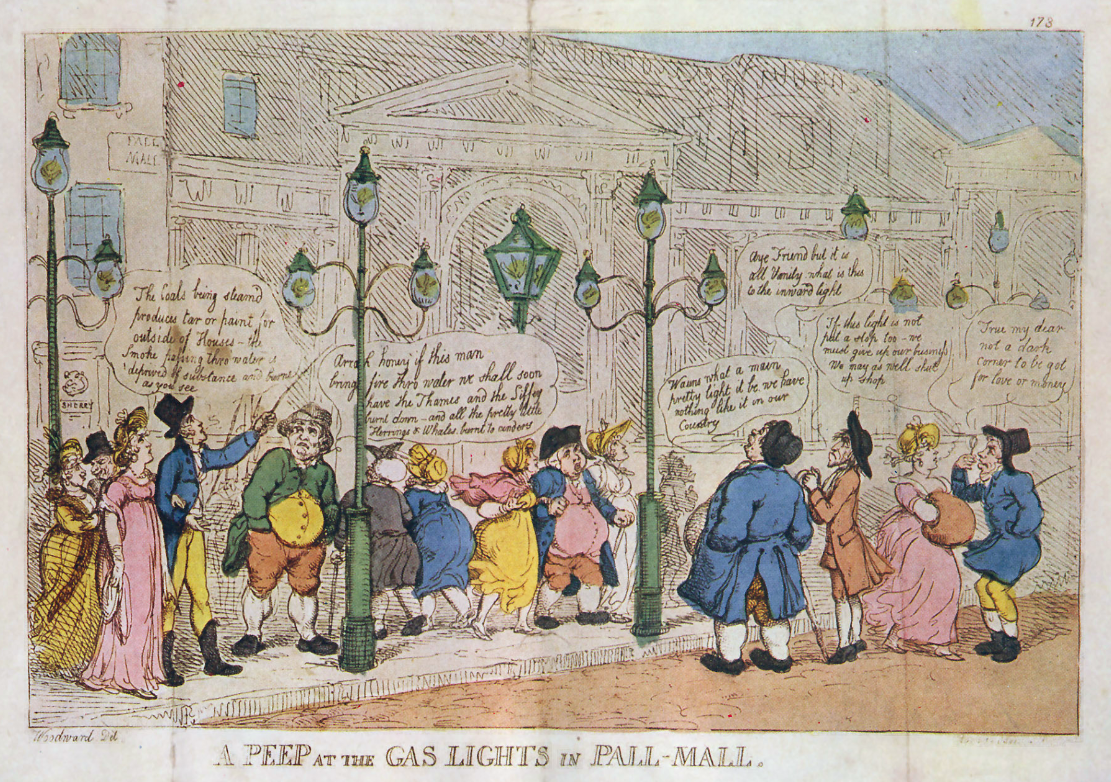 173
PALL
MALL
The Coals being steamd
produces tar or paint for
outside of Houses - the
Smoke passing thro water is
deprived of substance and burns
as you see
Arrah honey if this man
bring fire thro water we shall soon
have the Thames and the Liffey
burnt down - and all the pretty little
Herrings & Whales burnt to cinders
Wauns what a main
pretty light it be we have
nothing like it in our
Country
Aye Friend but it is
all Vanity what is this
to the inward light
If this light is not
put a stop too - we
must give up our business
We may as well shut
up shop
True my dear
not a dark
corner to be got
for love or money
SHERRY
Woodward Del
A PEEP AT THE GAS LIGHTS IN PALL-MALL.